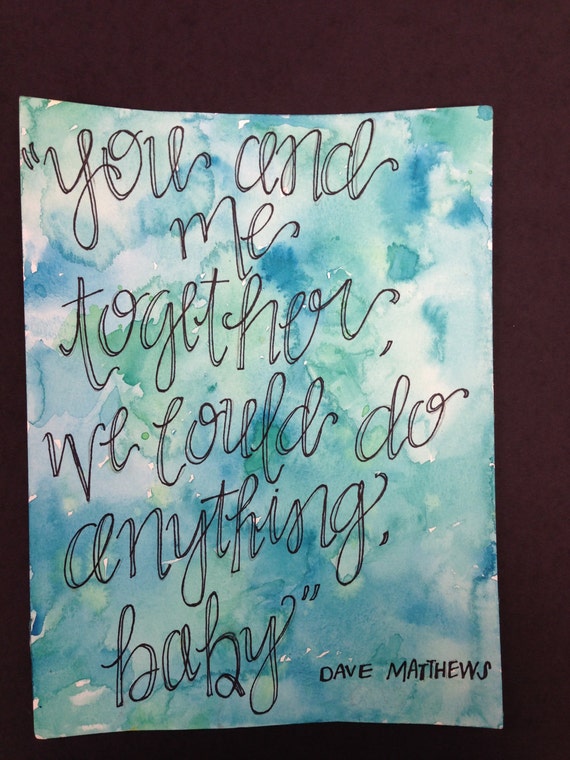 "you and
me
together,
we could do
anything,
baby"
DAVE MATTHEWS